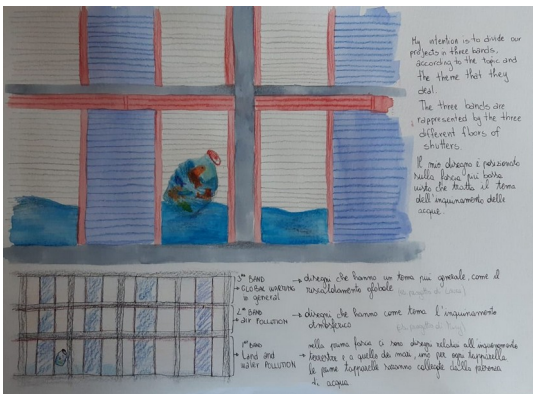 My intention is to divide our
projects in three bands,
according to the topic and
the theme that they
deal.
The three bands are
rappresented by the three
different floors of
shutters.
Il mio disegno è posizionato
sulla fascia più bassa
visto che tratta il tema
dell'inquinamento delle
acque.
3rd BAND
GLOBAL WARMING
in general
→ disegni che hanno un tema più generale, come il
riscaldamento globale
2nd BAND
air POLLUTION
→ disegni che hanno come tema l'inquinamento
atmosferico
1st BAND
Land and
water POLLUTION
→ nella prima fascia ci sono disegni relativi all'inquinamento
terrestre e a quello dei mari, uno per ogni tapparella
le prime tapparelle saranno collegate dalla presenza
di acqua